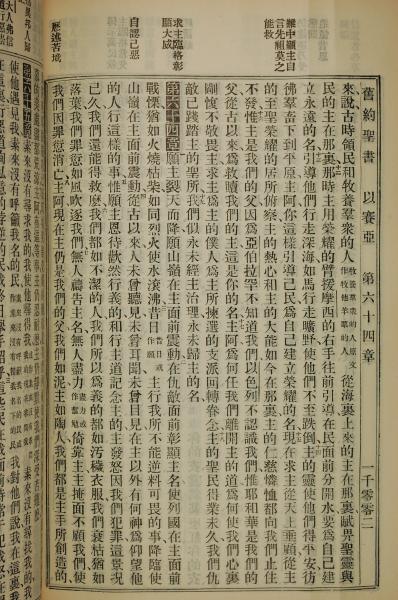 舊約聖書　以賽亞　第六十四章　一千零零二
難中顧主曰
言先祖莫之
能救
求主臨格彰
願大威
自認己惡
歷述苦境
來說古時領民和牧養羣衆的人牧養羣衆的人原文作牧他羊羣的人從海裏上來的主在那裏賦畀聖靈與
民的主在那裏那時主用榮耀的臂援摩西的右手往前引導在民面前分開水要爲自己建
立永遠的名引導他們行走深海如馬行走曠野使他們不至跌倒主的靈使他們得平安彷
彿羣畜下到平原主阿你這樣引導己民爲自己建立榮耀的名現在求主從天上垂顧從主
的至聖榮耀的居所俯察主的熱心和主的大能如今在那裏主的仁慈憐恤都向我們止住
不發惟主是我們的父因爲亞伯拉罕不知道我們以色列不認識我們惟耶和華是我們的
父從古以來爲救贖我們的主這是你的名主阿爲何任我們離開主的道爲何使我們心裏
剛愎不敬畏主求主爲主的僕人爲主所揀選的支派回轉眷念主的聖民得業未久我們仇
敵已踐踏主的聖所我們似永未經主治理永未歸主的名
第六十四章願主裂天而降願山嶺在主面前震動在仇敵面前彰顯主名使列國在主面前
戰慄猶如火燒枯柴如同烈火使水滾沸昔日昔日或作願主行我所不能逆料可畏的事降臨使
山嶺在主面前震動從古以來人未曾聽見未曾耳聞未曾目見在主以外有何神爲仰望他
的人行這樣的事惟願主恩待歡然行義的和行主道記念主的主發怒因我們犯罪這景況
已久我們還能得救麽我們都如不潔的人我們所以爲義的都如污穢衣服我們衰枯猶如
落葉我們罪惡如風吹逐我們無人禱告主名無人盡力盡力或作奮勉倚靠主主掩面不顧我們使
我們因罪愆消亡主阿現在主仍是我們的父我們如泥主如陶人我們都是主手所創造的